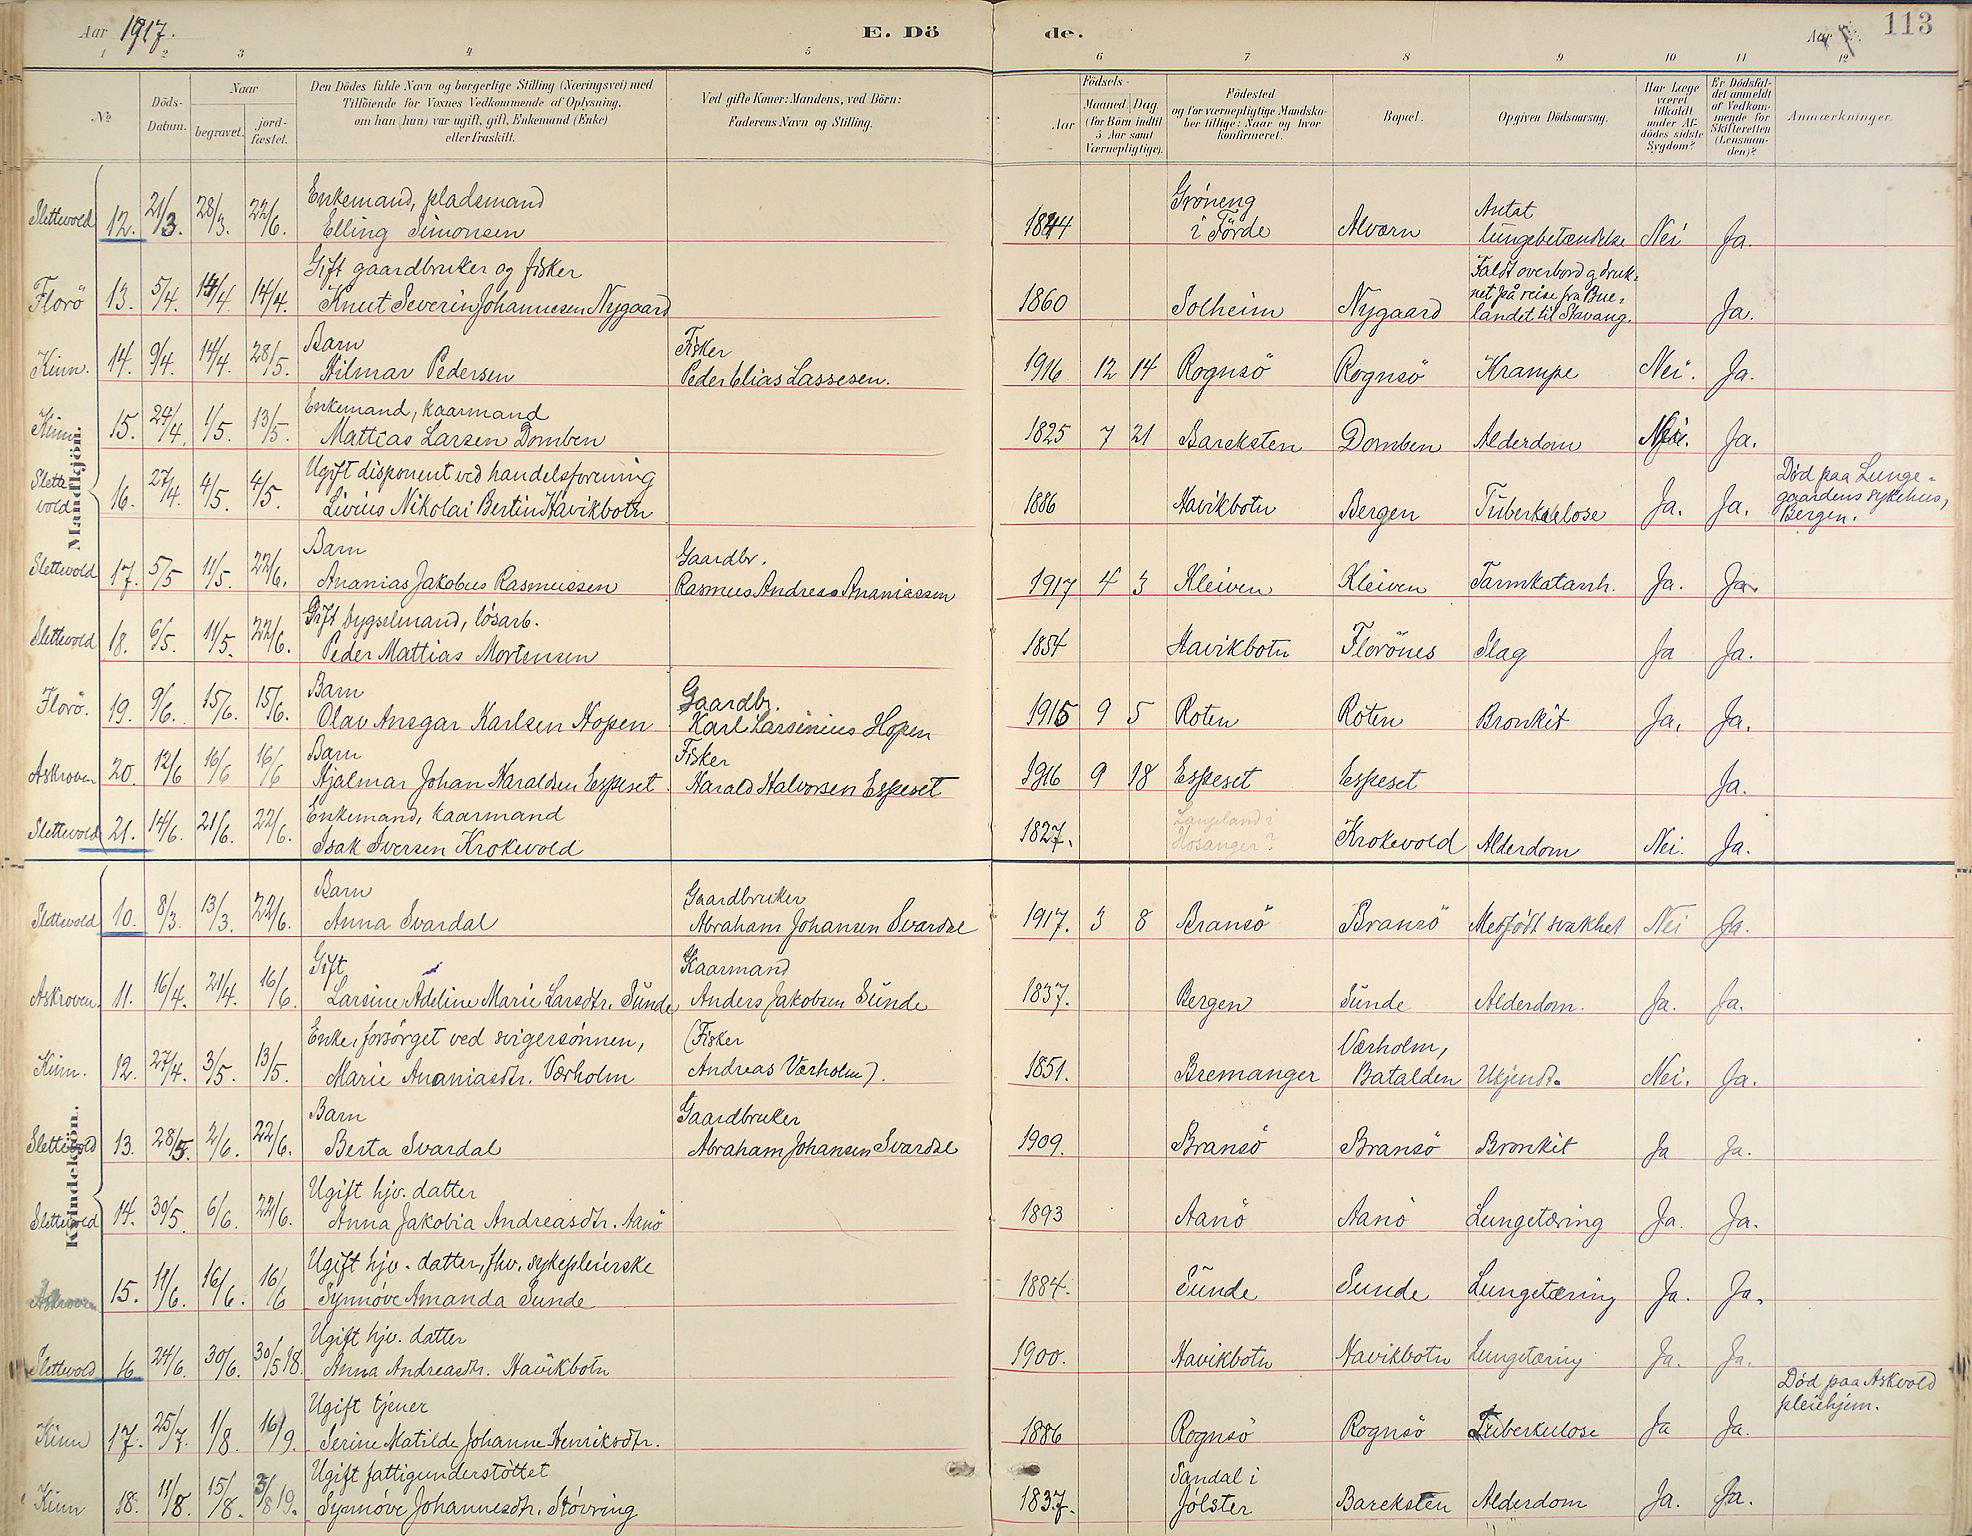 Aar 1917.
E. Dö
de.
Aar
113
1 2 3 4 5 6 7 8 9 10 11 12
No
Döds-
Datum.
Naar
begravet.
jord-
fæstet.
Den Dödes fulde Navn og borgerlige Stilling (Næringsvei) med
Tilföiende for Voxnes Vedkommende af Oplysning,
om han (hun) var ugift, gift, Enkemand (Enke)
eller fraskilt.
Ved gifte Koner: Mandens, ved Börn:
Faderens Navn og Stilling.
Födsels-
Aar
Maaned. Dag
(for Börn indtil
5 Aar samt
Værnepligtige).
Födested
og for værnepligtige Mandska-
ber tillige: Naar og hvor
konfirmeret.
Bopæl.
Opgiven Dödsaarsag.
Har Læge
været
tilkaldt
under Af-
dödes sidste
Sygdom?
Er Dödsfal-
det anmeldt
af Vedkom-
mende for
Skifteretten
(Lensman-
den)?
Anmærkninger.
Mandkjön.
Slettevold 12. 21/3. 28/3. 22/6. Enkemand, pladsmand
Elling Simonsen
1844 Gröneng
i Förde Alværn Antat
lungebetændelse Nei Ja.
Florö 13. 5/4. 14/4. 14/4. Gift gaardbruker og fisker
Knut Severin Johannesen Nygaard
1860 Solheim Nygaard Faldt overbord og druk-
net på reise fra Bue-
landet til Stavang. Ja.
Kinn. 14. 9/4. 14/4. 28/5. Barn
Hilmar Pedersen
Fisker
Peder Elias Lassesen.
1916 12 14 Rognsö Rognsö Krampe Nei. Ja.
Kinn 15. 24/4. 1/5. 13/5. Enkemand, kaarmand
Mattias Larsen Domben
1825 7 21 Bareksten Domben Alderdom Nei. Ja.
Slette
vold 16. 27/4. 4/5. 4/5. Ugift disponent ved handelsforening
Livius Nikolai Bertin Havikbotn
1886 Havikbotn Bergen Tuberkulose Ja. Ja. Död paa Lunge-
gaardens sykehus,
Bergen.
Slettevold 17. 5/5 11/5. 22/6. Barn
Ananias Jakobus Rasmussen
Gaardbr.
Rasmus Andreas Ananiassen
1917 4 3 Kleiven Kleiven Tarmkatarrh. Ja. Ja.
Slettevold 18. 6/5. 11/5. 22/6. Gift bygselmand, lösarb.
Peder Mattias Mortensen
1854 Havikbotn Florönes Slag Ja Ja.
Florö. 19. 9/6. 15/6. 15/6. Barn
Olav Ansgar Karlsen Hopen
Gaardbr.
Karl Larsinius Hopen
1915 9 5 Roten Roten Bronkit Ja. Ja.
Askroven 20. 12/6 16/6 16/6 Barn
Hjalmar Johan Haraldsen Espeset.
Fisker
Harald Halvorsen Espeset
1916 9 18 Espeset Espeset Ja.
Slettevold 21. 14/6. 21/6. 22/6. Enkemand, kaarmand
Isak Iversen Krokevold
1827. Langeland i
Hosanger? Krokevold Alderdom Nei. Ja.
Kvindekjön.
Slettevold 10. 8/3. 13/3. 22/6. Barn
Anna Svardal
Gaardbruker
Abraham Johansen Svardal
1917. 3 8 Bransö Bransö Medfödt svakhet Nei Ja.
Askroven. 11. 16/4. 21/4. 16/6. Gift
Larsine Adeline Marie Larsdtr. Sunde
Kaarmand
Anders Jakobsen Sunde
1837. Bergen Sunde Alderdom. Ja. Ja.
Kinn. 12. 27/4. 3/5. 13/5. Enke, forsörget ved svigersönnen,
Marie Ananiasdtr. Værholm
(Fisker
Andreas Værholm).
1851. Bremanger Værholm,
Batalden Ukjendt. Nei. Ja.
Slettevold 13. 28/5. 2/6. 22/6. Barn
Berta Svardal
Gaardbruker
Abraham Johansen Svardal
1909. Bransö Bransö Bronkit Ja Ja.
Slettevold 14. 30/5. 6/6. 22/6. Ugift hjv. datter
Anna Jakobia Andreasdtr. Aanö
1893 Aanö Aanö Lungetæring Ja. Ja.
Askroven 15. 11/6. 16/6. 16/6 Ugift hjv. datter, fhv. sykepleierske
Synnöve Amanda Sunde
1884. Sunde Sunde Lungetæring Ja. Ja.
Slettevold 16 24/6. 30/6. 30/5 18. Ugift hjv. datter
Anna Andreasdtr. Havikbotn
1900. Havikbotn Havikbotn Lungetæring Ja. Ja.
Kinn 17. 25/7. 1/8. 16/9. Ugift tjener
Serine Matilde Johanne Henriksdtr.
1886 Rognsö Rognsö Tuberkulose Ja Ja. Död paa Askvold
pleiehjem.
Kinn 18. 11/8. 15/8. 3/8 19. Ugift fattigunderstöttet
Synnöve Johannesdtr. Stövring
1837. Sandal i
Jölster Bareksten Alderdom Ja. Ja.